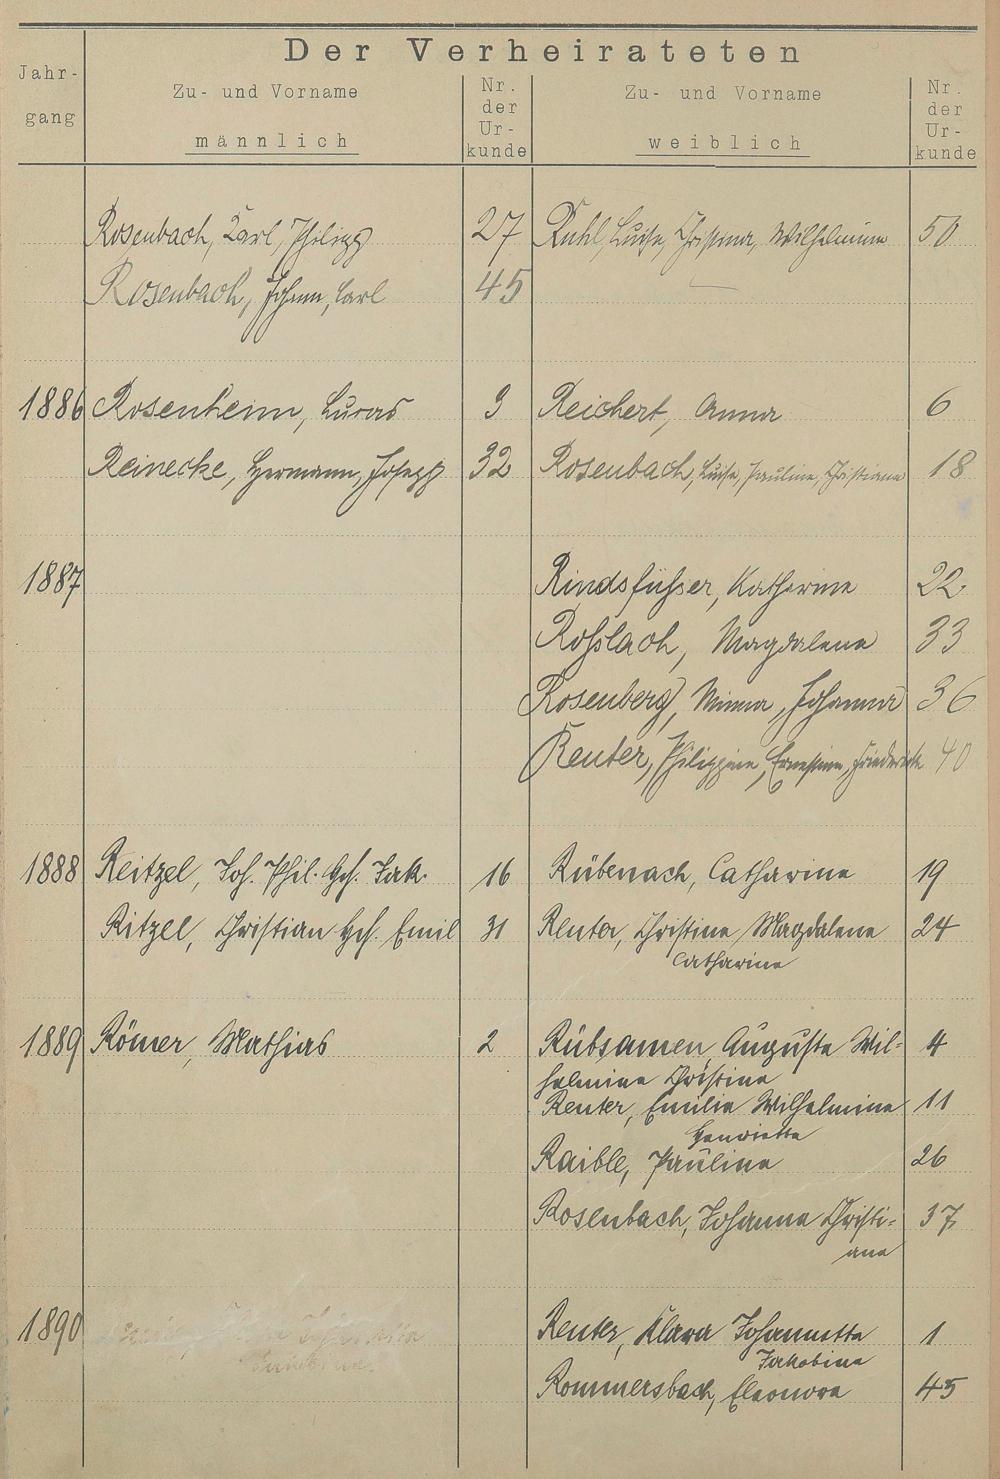 Der Verheirateten
Jahr-
gang
Zu- und Vorname
männlich
Nr.
der
Ur-
kunde
Zu- und Vorname
weiblich
Nr.
der
Ur-
kunde
Rosenbach, Karl, Philipp 27 Ruhl, Luise, Christina, Wilhelmine 50
Rosenbach, Johann, Carl 45
1886 Rosenheim, Lucas 9 Reichert, Anna 6
Reinecke, Hermann, Joseph 32 Rosenbach, Luise, Pauline, Christiane 18
1887 Rindsfüßer, Katharine 22
Roßlach, Magdalena 33
Rosenberg, Minna, Johanna 36
Reuter, Philippine, Ernestine, Friederike 40
1888 Reitzel, Joh. Phil. Hch. Jak. 16 Rübenach, Catharina 19
Ritzel, Christian Hch. Emil 31 Reuter, Christine Magdalene 24
Catharine
1889 Römer, Mathias 2 Rübsamen, Auguste Wil- 4
helmine Christine
Reuter, Emilie Wilhelmine 11
Henriette
Raible, Pauline 26
Rosenbach, Johanna Christi- 37
ane
1890 Reuter, Klara Johannette 1
Jakobine
Rommersbach, Eleonora 45